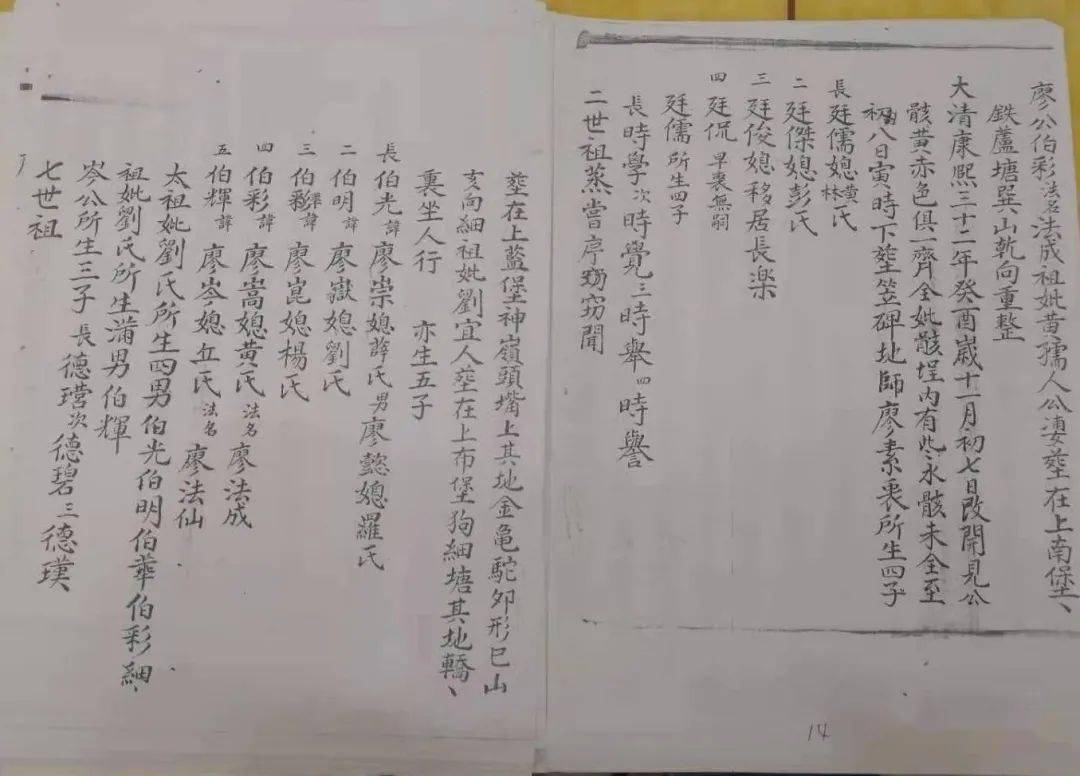 廖公伯彩法名法成祖妣黄孺人公妻塟在上南堡、
鉄蘆塘巽山乾向重整
大清康熙三十二年癸酉歲十一月初七日改開見公
骸黄赤色俱一齊全妣骸埕内有些水骸未全至
初八日寅時下塟笠碑地師廖素裊所生四子
長廷儒媳黄林氏
二廷傑媳彭氏
三廷俊媳移居長楽
四廷侃早喪無嗣
廷儒所生四子
長時學次時覺三時舉四時譽
二世祖蒸嘗序窃聞
14
塟在上藍堡神嶺頭墖上其地金亀駝卵形巳山
亥向細祖妣劉宜人塟在上布堡狗細塘其地轎、
裏坐人行 亦生五子
長伯光諱廖崇媳薛氏男廖懿媳羅氏
二伯明諱廖嶽媳劉氏
三伯彩諱廖崑媳楊氏
四伯彩諱廖嵩媳黄氏法名廖法成
五伯輝諱廖岺媳丘氏法名廖法仙
太祖妣劉氏所生四男伯光伯明伯華伯彩細、
祖妣劉氏所生満男伯輝
岺公所生三子長德瑩次德碧三德璞
七世祖